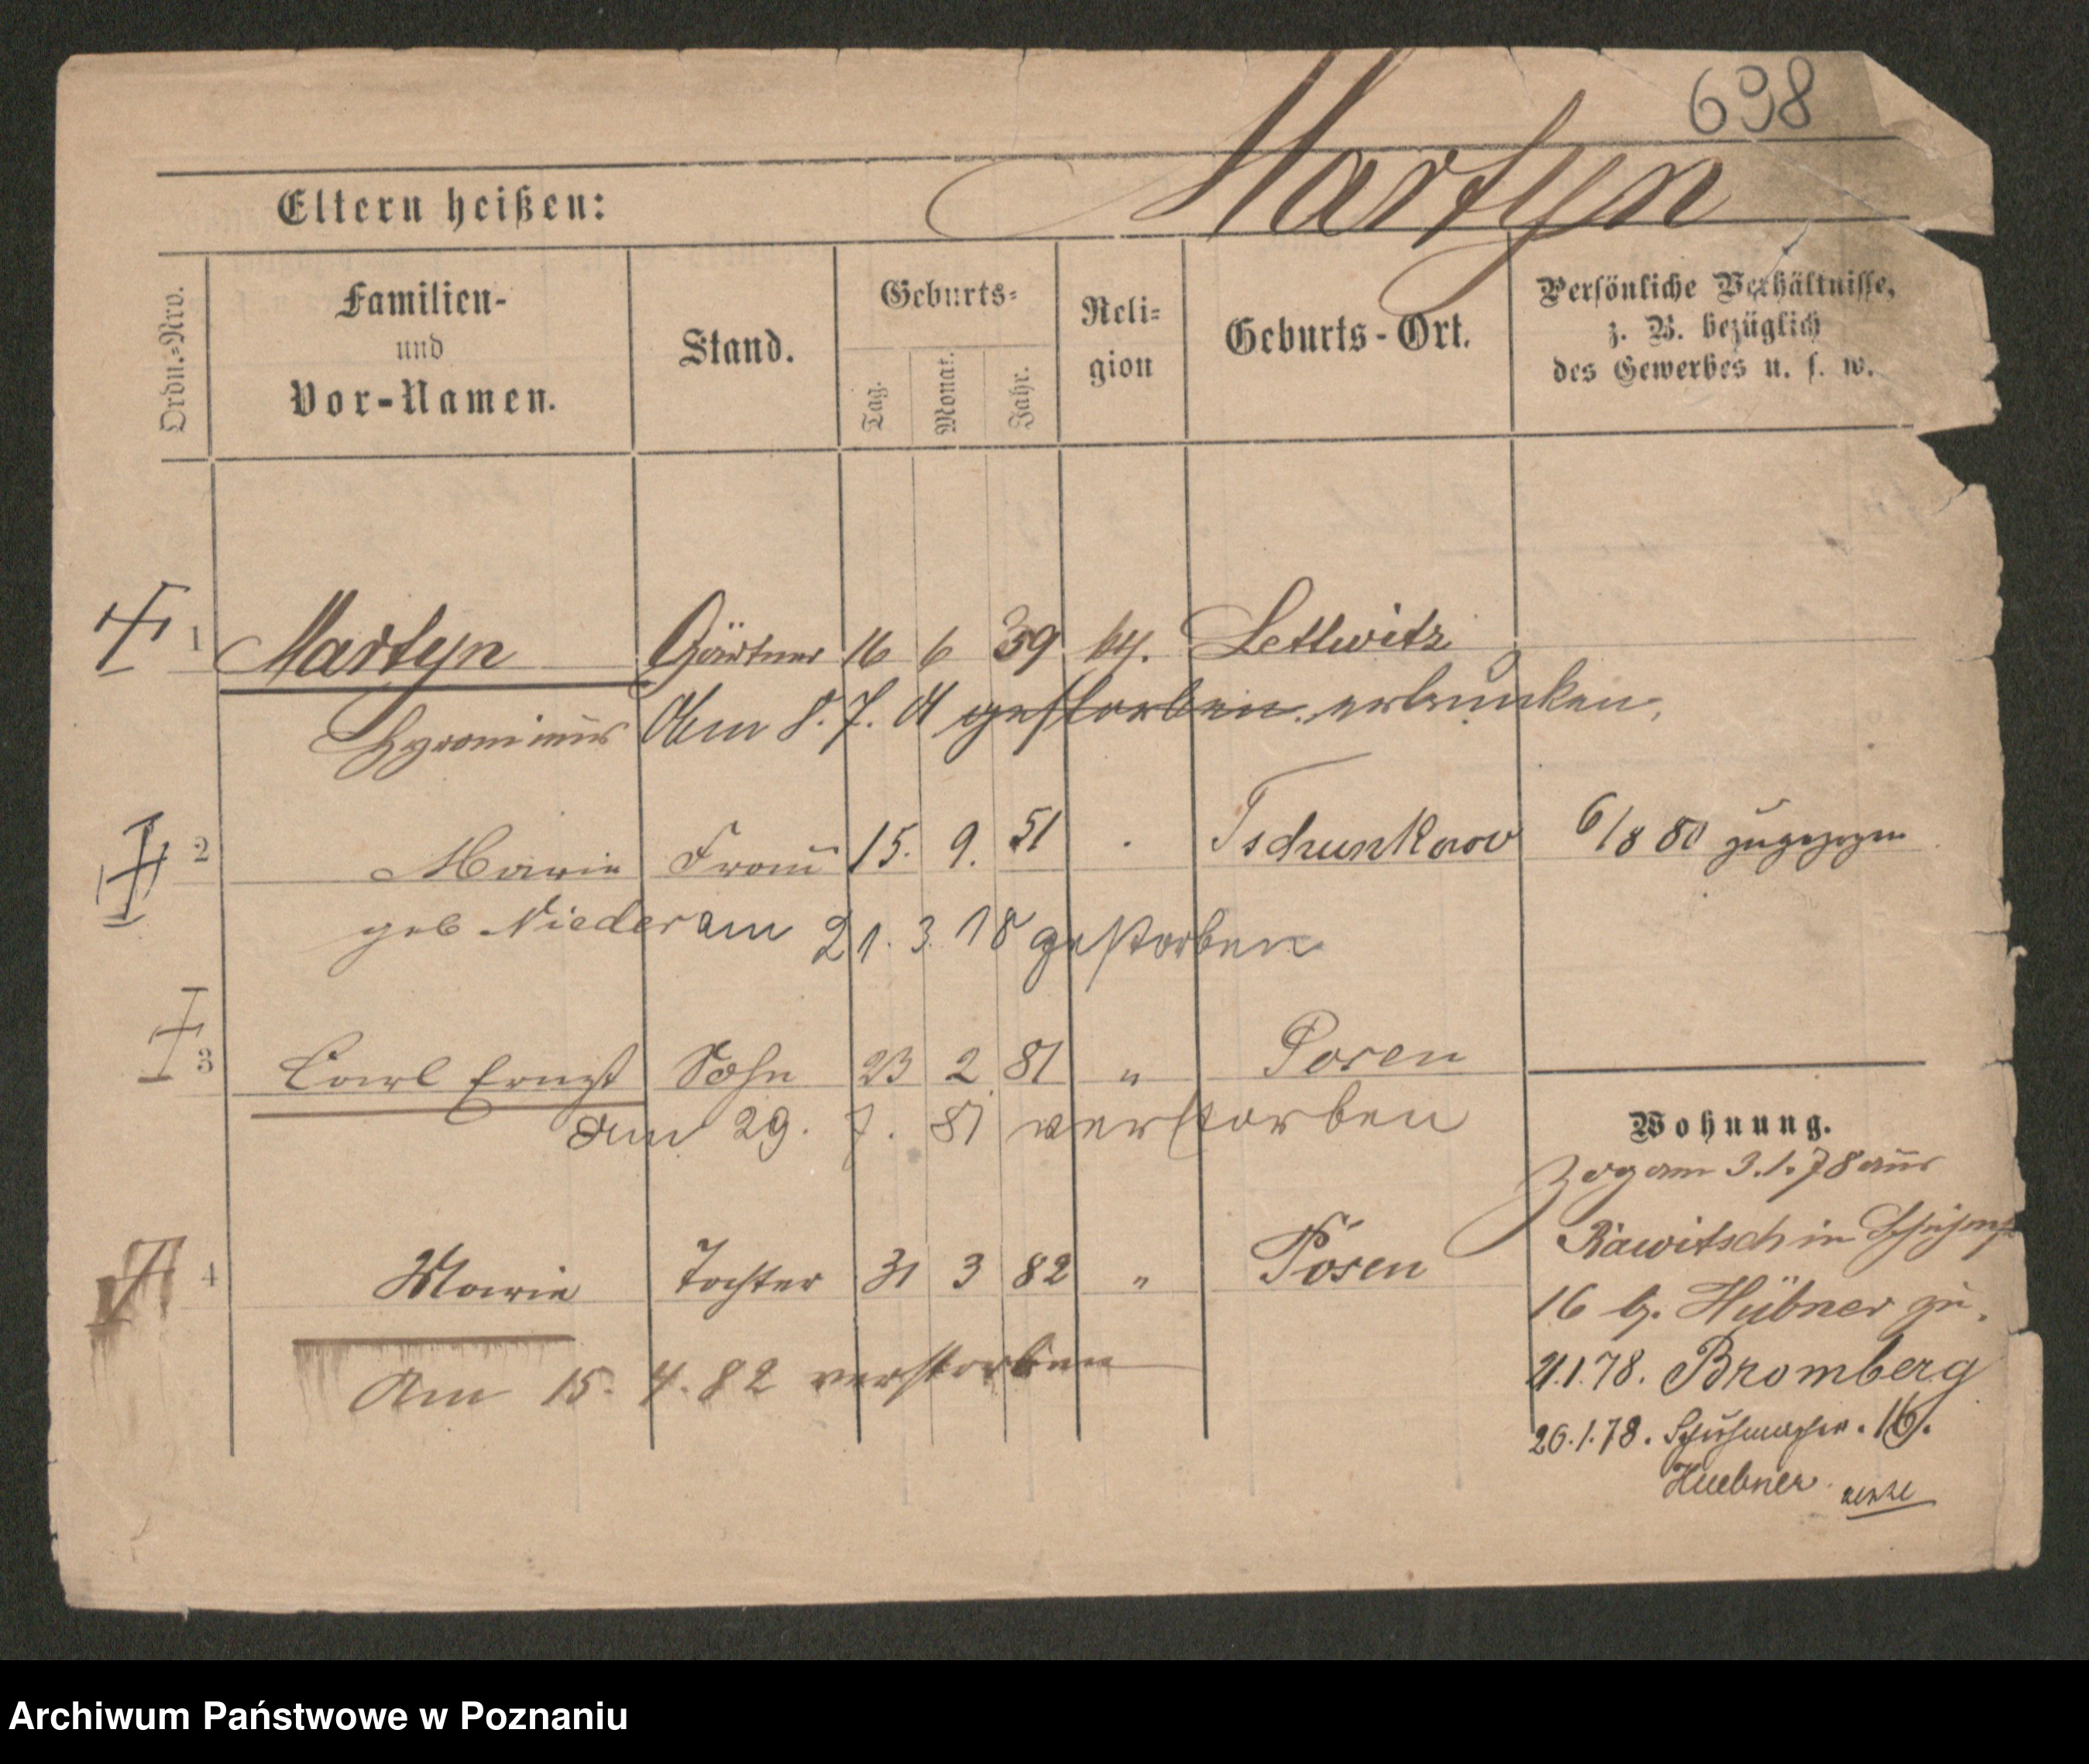 698
Eltern heißen: Martyn
Ordn.=Nro. Familien- und Vor-Namen. Stand. Geburts= Tag. Monat. Jahr. Reli= gion Geburts-Ort. Persönliche Verhältnisse, z. B. bezüglich des Gewerbes u. s. w.
1 Martyn Gärtner 16 6 39 Lettwitz
Am 8. 7. gestorben ertrunken.
2 Marie Frau 15. 9. 51 Tschunkawe 6/8 80 zugezogen
geb Nieder am 21. 3. 18 gestorben
3 Carl Ernst Sohn 23 2 81 " Posen
am 29. 7. 81 verstorben
4 Marie Tochter 31 3 82 " Posen
Am 15. 4. 82 verstorben
Wohnung.
Zog am 3.1.78 aus
Rawitsch in
16 b. Hübner zu.
21.1.78. Bromberg
26.1.78. Schuhmacher. 16.
Huebner
Archiwum Państwowe w Poznaniu